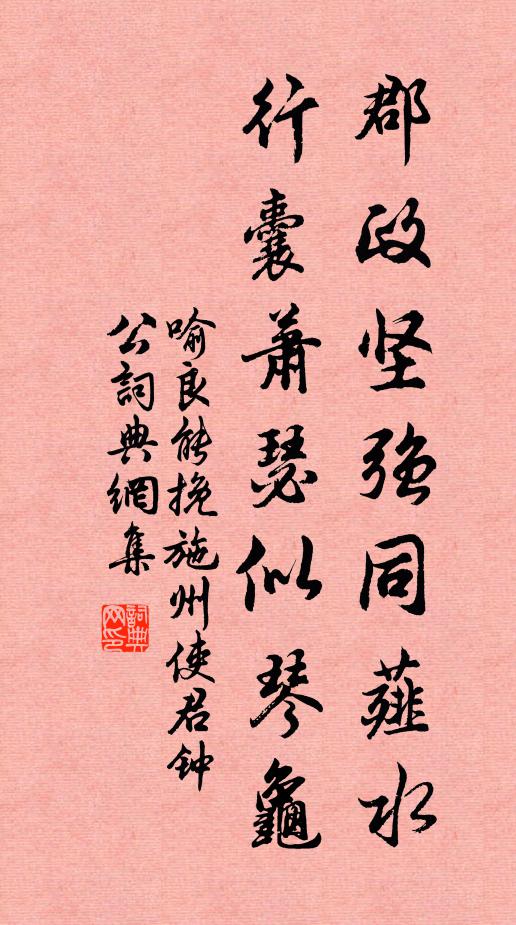 郡政坚强同薤水
行囊萧瑟似琴龜
喻良能挽施州使君钟
公詞典網集
詞典网印